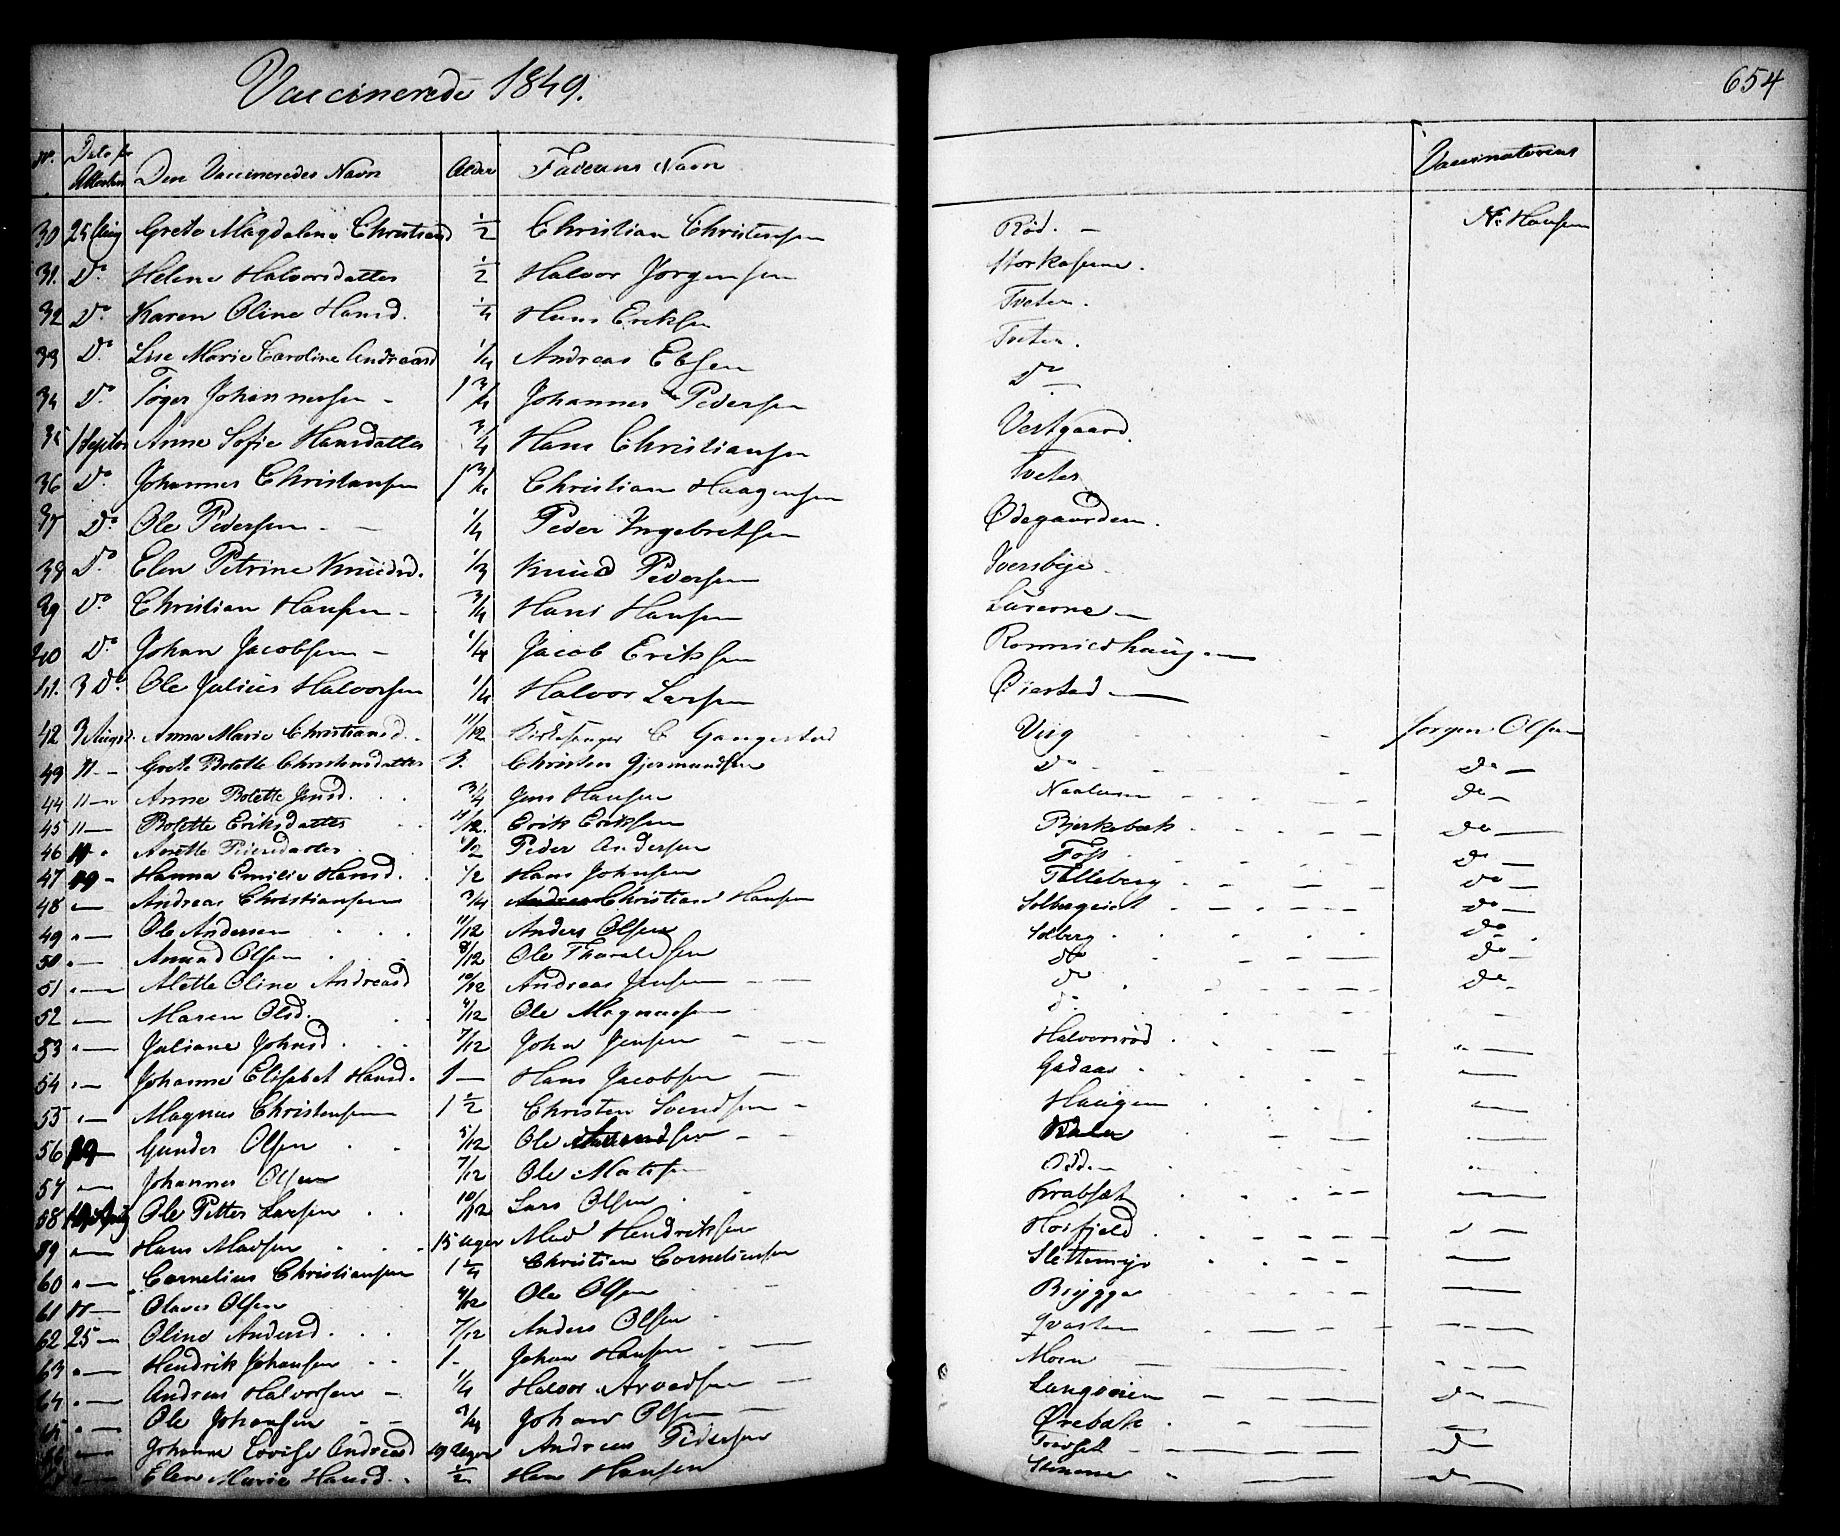 Vaccinerede 1849.
654
No. Dato for Attesten Den Vaccineredes Navn Alder Faderens Navn Vaccinatorens
30 25 Aug Grete Magdalene Christiansd 1/2 Christian Christensen Röd. — N. Hansen
31. Do Helene Halvorsdatter 1/2 Halvor Jörgensen Storkaserne.
32 Do Karen Oline Hansd. 1/4 Hans Eriksen Tveten.
33 Do Lise Marie Caroline Andreasd 1/4 Andreas Ebsen Tveten.
34 Do Töger Johannesen - 1 3/4 Johannes Pedersen Do —
35 1 Septbr Anne Sofie Hansdatter 3/4 Hans Christiansen Vestgaard.
36 Do Johannes Christiansen 1 3/4 Christian Haagensen Tveter
37 Do Ole Pedersen - — 1/4 Peder Ingebretsen Ödegaarden.
38 Do Elen Petrine Knudsd. 1/3 Knud Pedersen Iversbye
39 Do Christian Hansen - 3/4 Hans Hansen —
40 Do Johan Jacobsen - 1/4 Jacob Eriksen Romnieshaugen
41. 3 Do Ole Julius Halvorsen 1/4 Halvor Larsen Öiestad —
42 3 Augst. Anna Marie Christiansd. 11/12 Kirkesanger C Gangestad Viig Jörgen Olsen
43 11 - Grete Bolette Christensdatter 1. Christen Gjermundsen Do Do —
44 11 — Anne Bolette Jensd. 3/4 Jens Hansen Do —
45 11 — Bolette Eriksdatter 11/12. Erik Eriksen Bjerkebæk Do —
46 Anette Pedersdatter 1/2 Peder Andersen Foss Do —
47 19 - Hanna Emilie Hansd. 1/2 Hans Johnsen Tolleberg Do —
48 — Andreas Christiansen 3/4 Christian Hansen Solbergeiet Do —
49 „— Ole Andersen 11/12 Anders Olsen Solberg Do
50 „— Amund Olsen 8/12 Ole Thoraldsen Do Do —
51 „— Alette Oline Andreasd 10/12 Andreas Jensen Do Do -
52 — Maren Olsd. 4/12 Ole Magnusen Do
53 „— Juliane Johnsd 7/12 John Jensen Halvorsröd „—
54 „— Johanne Elisabet Hansd. 1 — Hans Jacobsen Gadaas —
55 „— Magnus Christensen 1 1/2 Christen Svendsen - Haugen —
56 19 Gunder Olsen 5/12 Ole —
57 — Johannes Olsen 7/12 Ole Matsen Röd —
58 Ole Petter Larsen 10/12 Lars Olsen Krabsæt —
59 „— Hans Madsen 15 Uger Mad Hendriksen Horfjeld „ —
60 „— Cornelius Christiansen 1 1/4 Christian Corneliusen Slettemyr —
61 17 — Olaves Olsen 4/12 Ole Olsen Brygga —
62 25 — Oline Andersd. 7/12 Anders Olsen Qvasten —
63 „— Hendrik Johansen 1. Johan Hansen Moen
64 „— Andreas Halvorsen - 1/4 Halvor Arvedsen Langöeien Do —
65 „— Ole Johansen 3/4 Johan Olsen Örebæk
66 — Johanne Lovise Andreasd 19 Uger Andreas Pedersen Do
67 Elen Marie Hansd. 1/2 Hans Hansen Stenene Do